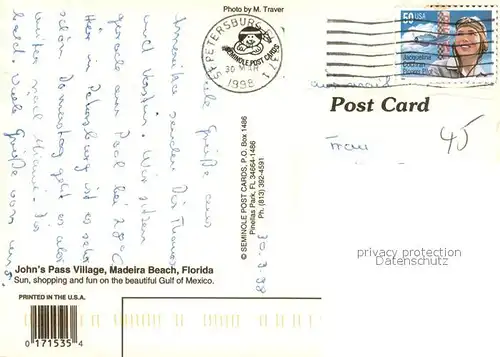 Photo by M. Traver
ST. PETERSBURG
30 MAR
1998
SEMINOLE POST CARDS
50 USA
Jacqueline
Cochran
Pioneer Pilot
Post Card
Frau
45
privacy protection
Datenschutz
30.3.98
viele Grüße aus
Amerika senden Dir Thomas
und Kerstin. Wir sitzen
gerade am Pool bei 28°C
Hier in Petersburg ist es sehr
schön. Donnerstag geht es aber
weiter nach Miami. Bis
bald viele Grüße von uns.
© SEMINOLE POST CARDS, P.O. Box 1486
Pinellas Park, FL 34664-1486
Ph. (813) 392-4591
John's Pass Village, Madeira Beach, Florida
Sun, shopping and fun on the beautiful Gulf of Mexico.
PRINTED IN THE U.S.A.
0 171535 4